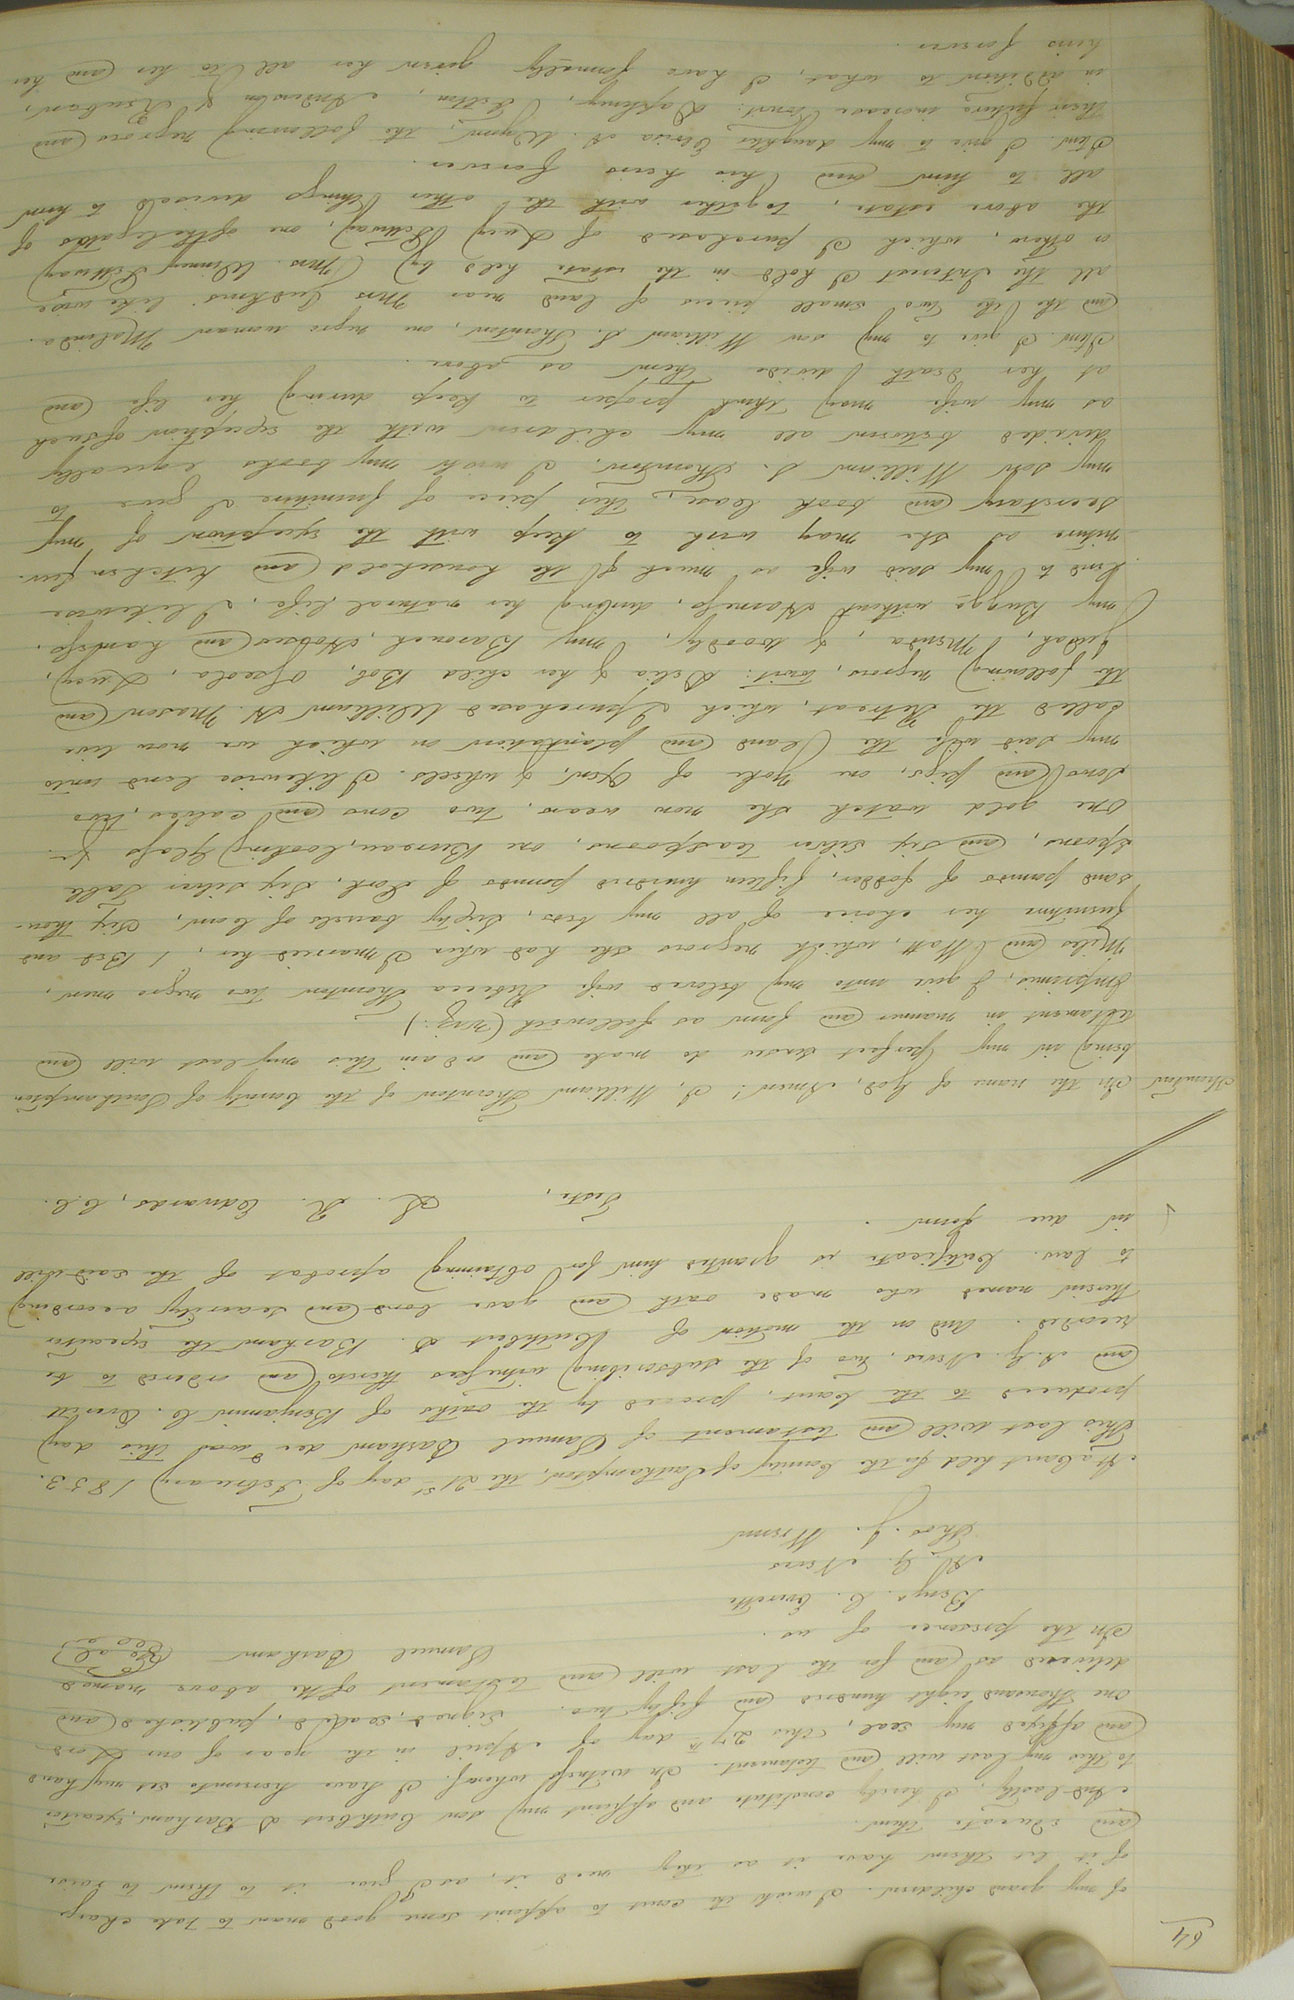 64
of my grand children. I wish the court to appoint some good man to take charge
of it let them have it as they need it, as I give it to them to raise
and educate them.
And lastly, I hereby constitute and appoint my son Cuthbert D Barham, executor
to this my last will and testament. In witness whereof, I have hereunto set my hand
and affixed my seal, this 27th day of April in the year of our Lord
one thousand eight hundred and fifty two. Signed, sealed, published and
delivered as and for the last will and testament of the above named
In the presence of us. Samuel Barham (Seal)
Benja. C. Everitt
A. G. Nevis
Thos. J. Wrenn
At a Court held for the County of Southampton, the 21st day of February 1853.
This last will and testament of Samuel Barham dec'd was this day
produced to the Court, proved by the oaths of Benjamin C. Everitt
and A. G. Nevis, two of the subscribing witnesses thereto and ordered to be
recorded. And on the motion of Cuthbert D. Barham the executor
therein named who made oath and gave bond and security according
to law. Certificate is granted him for obtaining a probat of the said will
in due form.
Teste, L. R. Edwards, C.C.
Thornton In the name of God, Amen! I, William Thornton of the County of Southampton
being in my perfect senses do make and ordain this my last will and
testament in manner and form as followeth (viz:)
Imprimis, I give unto my beloved wife Rebecca Thornton two negro men,
Miles and Matt, which negroes she had when I married her, 1 Bed and
furniture her choice of all my beds, Fifty barrels of corn, Six thou-
sand pounds of fodder, fifteen hundred pounds of Pork, Six silver Table
Spoons, and Six silver teaspoons, one Bureau, looking Glass &
one gold watch she now wears, two cows and calves, two
sows and pigs, one yoke of Oxen, & wheels. I likewise lend unto
my said wife the land and plantation on which we now live
called the Retreat, which I purchased William H. Mason and
the following negroes, towit: Delia & her child Bob, Oseola, Lucy,
Judah, Menta, & Woodly, my Barouch, Horses and harness,
my Buggy without Harness, during her natural life, I likewise
lend to my said wife as much of the household and kitchen fur-
niture as she may wish to keep with the exception of my
secretary and book case, this piece of furniture I give to
my son William S. Thornton, I wish my books equally
divided between all my children with the exception of such
as my wife may think proper to keep during her life and
at her death divide them as above.
Item. I give to my son William S. Thornton, one negro woman Malinda.
and the the two small pieces of land near Mrs Judkins: like wise
all the Interest I hold in the estate held by (Mrs. Winny Pittway
or others, which I purchased of Lucy Pittway, one of the legatees of
the above estate, together with the other things devised to him
all to him and his heirs forever.
Item. I give to my daughter Eliza A. Wynn, the following negroes and
their future increase towit: Daphney, Litton, Anderson & Reuban,
in addition to what, I have formally given her all to her and her
heirs forever.